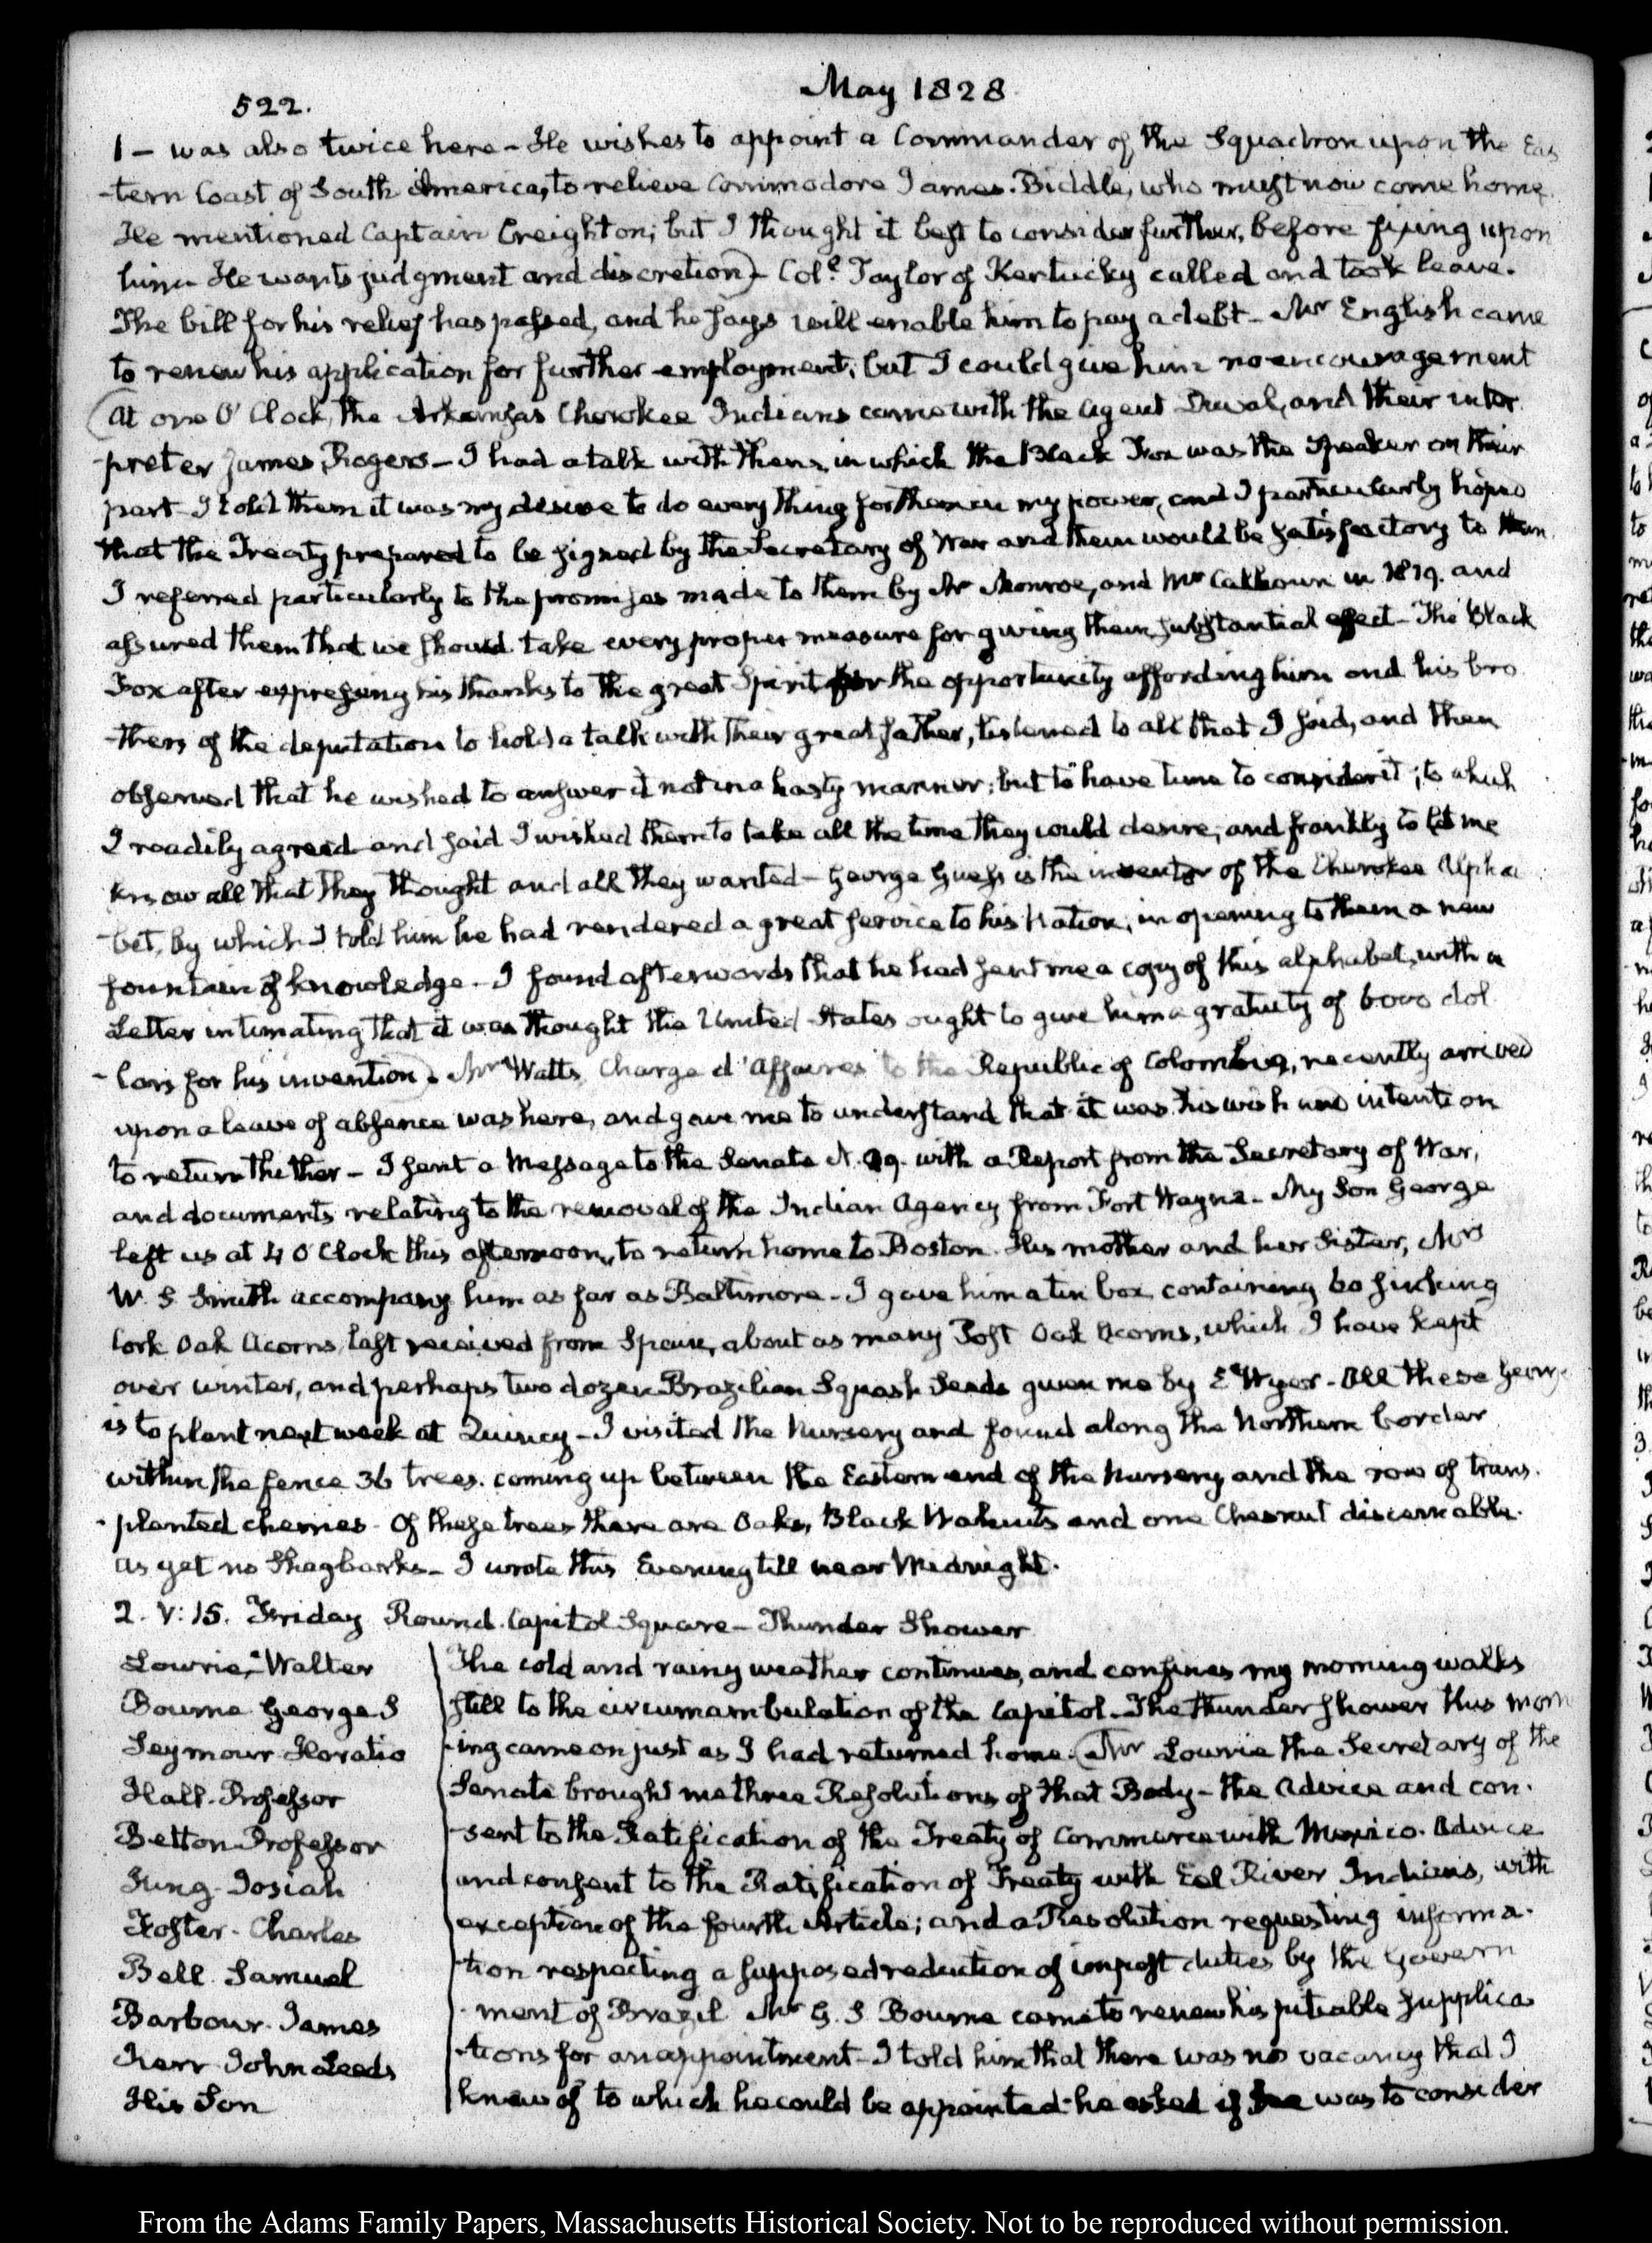 522.
May 1828
1 — was also twice here — He wishes to appoint a Commander of the Squadron upon the Eas
-tern Coast of South America, to relieve Commodore James Biddle, who must now come home.
He mentioned Captain Creighton; but I thought it best to consider further, before fixing upon
him. He wants judgment and discretion) — Col.l Taylor of Kentucky called and took leave.
The bill for his relief has passed, and he says will enable him to pay a debt — Mr English came
to renew his application for further employment; but I could give him no encouragement
(At one O'Clock, the Arkansas Cherokee Indians came with the Agent Duval, and their inter
-preter James Rogers — I had a talk with them, in which the Black Fox was the Speaker on their
part I told them it was my desire to do every thing for them in my power, and I particularly hoped
that the Treaty prepared to be signed by the Secretary of War and them would be satisfactory to them.
I referred particularly to the promises made to them by Mr Monroe, and Mr Calhoun in 1819. and
assured them that we should take every proper measure for giving them substantial effect — The Black
Fox after expressing his thanks to the great Spirit for the opportunity affording him and his bro
-thers of the deputation to hold a talk with their great father, listened to all that I said, and then
observed that he wished to answer it not in a hasty manner; but to have time to consider it; to which
I readily agreed and said I wished them to take all the time they could desire, and frankly to let me
know all that they thought and all they wanted — George Guess is the inventor of the Cherokee Alpha
-bet, by which I told him he had rendered a great service to his Nation, in opening to them a new
fountain of knowledge. I found afterwards that he had sent me a copy of this alphabet, with a
Letter intimating that it was thought the United States ought to give him a gratuity of 6000 dol
-lars for his invention) Mr Watts Chargé d'Affaires to the Republic of Colombia, recently arrived
upon a leave of absence was here, and gave me to understand that it was his wish and intention
to return thither — I sent a Message to the Senate N. 29. with a Report from the Secretary of War,
and documents relating to the removal of the Indian Agency from Fort Wayne — My Son George
left us at 4 O'Clock this afternoon, to return home to Boston. His mother and her Sister, Mrs
W. S. Smith accompany him as far as Baltimore — I gave him a tin box containing 60
Cork Oak Acorns, last received from Spain, about as many Post Oak Acorns, which I have kept
over winter, and perhaps two dozen Brazilian Squash Seeds given me by Ed Wyer — All these George
is to plant next week at Quincy — I visited the Nursery and found along the Northern border
within the fence 36 trees coming up between the Eastern end of the Nursery and the row of trans-
-planted cherries. Of these trees there are Oaks, Black Walnuts and one Chesnut discernable.
as yet no Shagbarks — I wrote this Evening till near Midnight.
2. V: 15. Friday Round Capitol Square — Thunder Shower
Lowrie, Walter
Bourne George S
Seymour Horatio
Hall. Professor
Betton Professor
Jung Josiah
Foster. Charles
Bell. Samuel
Barbour. James
Kerr John Leeds
His Son
The cold and rainy weather continues, and confines my morning walks
still to the circumambulation of the Capitol. The thunder shower this morn
-ing came on just as I had returned home. (Mr Lowrie the Secretary of the
Senate brought me three Resolutions of that Body — the Advice and con-
-sent to the Ratification of the Treaty of Commerce with Mexico. Advice
and consent to the Ratification of Treaty with Eel River Indians, with
exception of the fourth Article; and a Resolution requesting informa-
-tion respecting a supposed reduction of impost duties by the Govern
-ment of Brazil Mr G. S. Bourne came to renew his pitiable supplica
-tions for an appointment — I told him that there was no vacancy that I
knew of to which he could be appointed — he asked if he was to consider
From the Adams Family Papers, Massachusetts Historical Society. Not to be reproduced without permission.